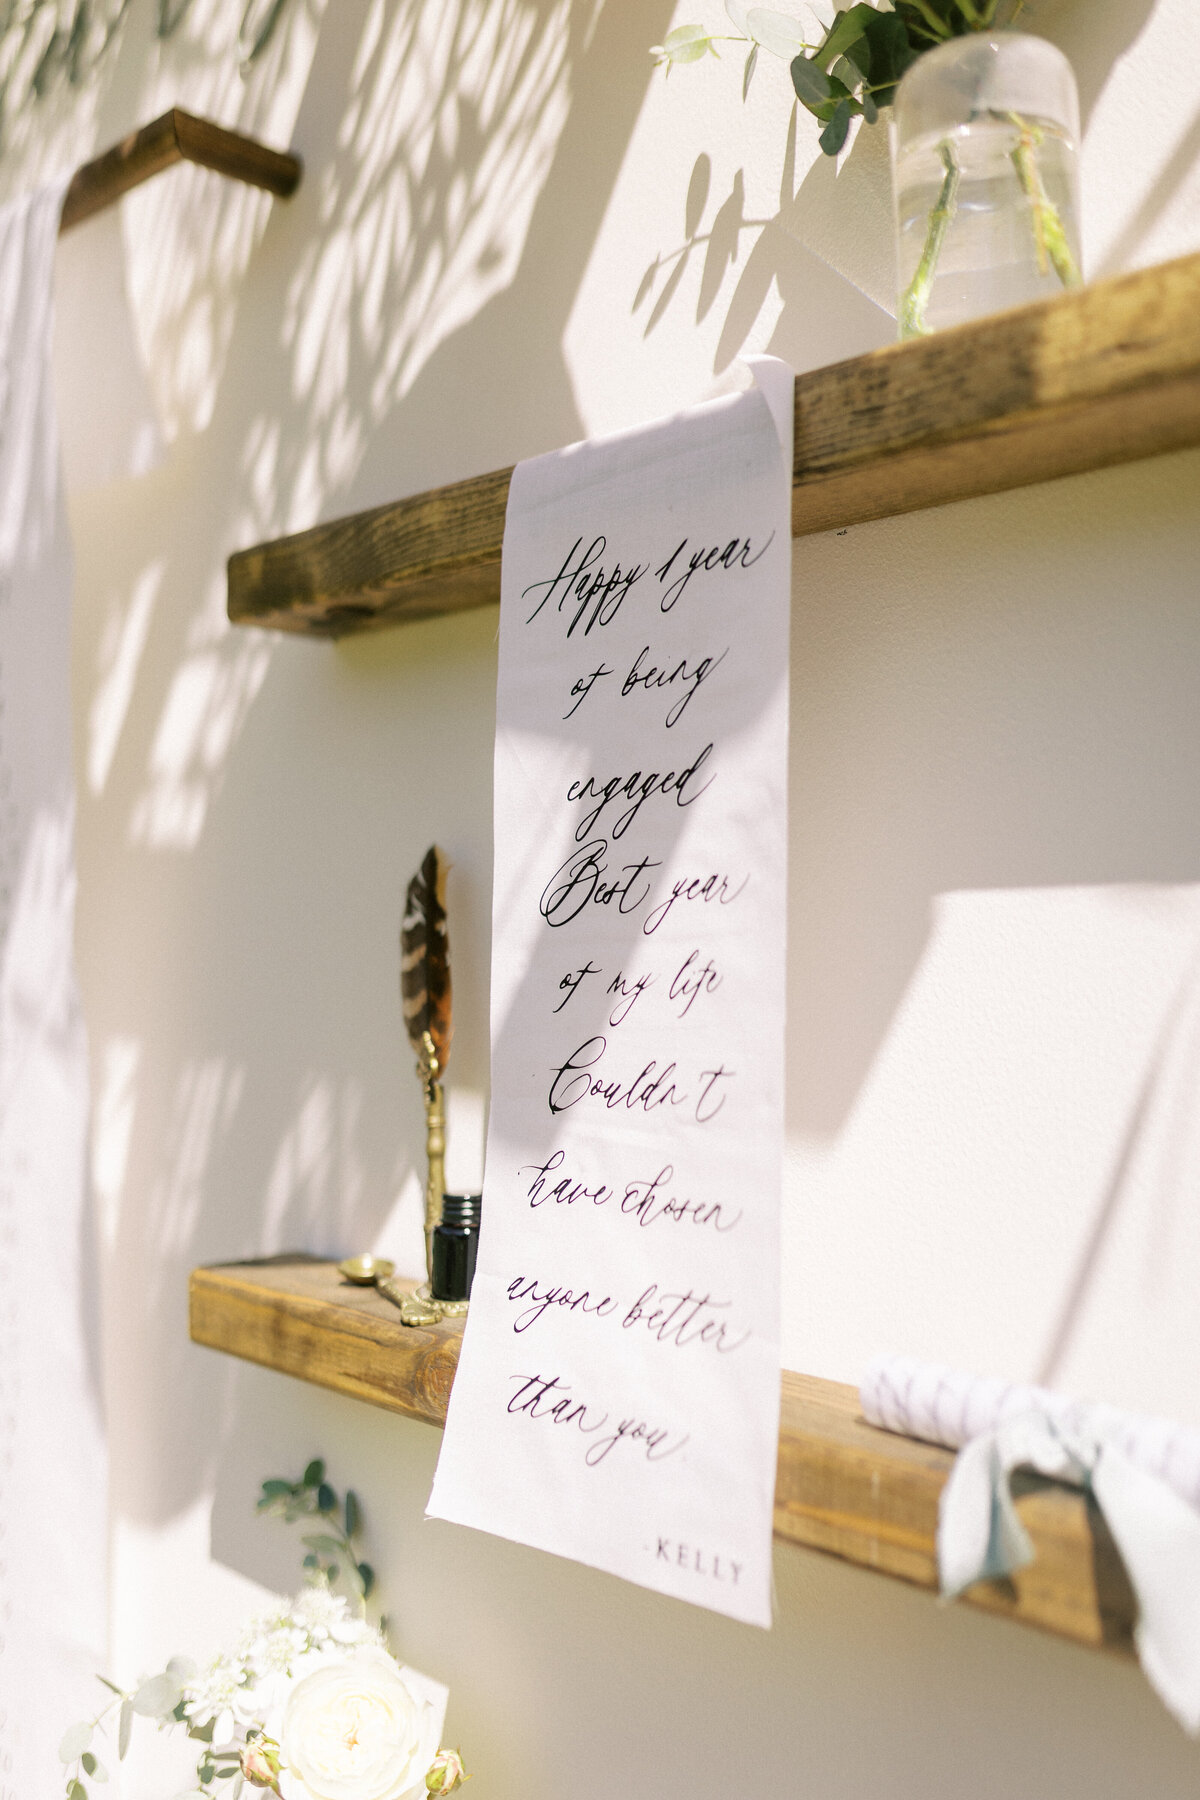 Happy 1 year
of being
engaged
Best year
of my life
Couldn't
have chosen
anyone better
than you
-KELLY